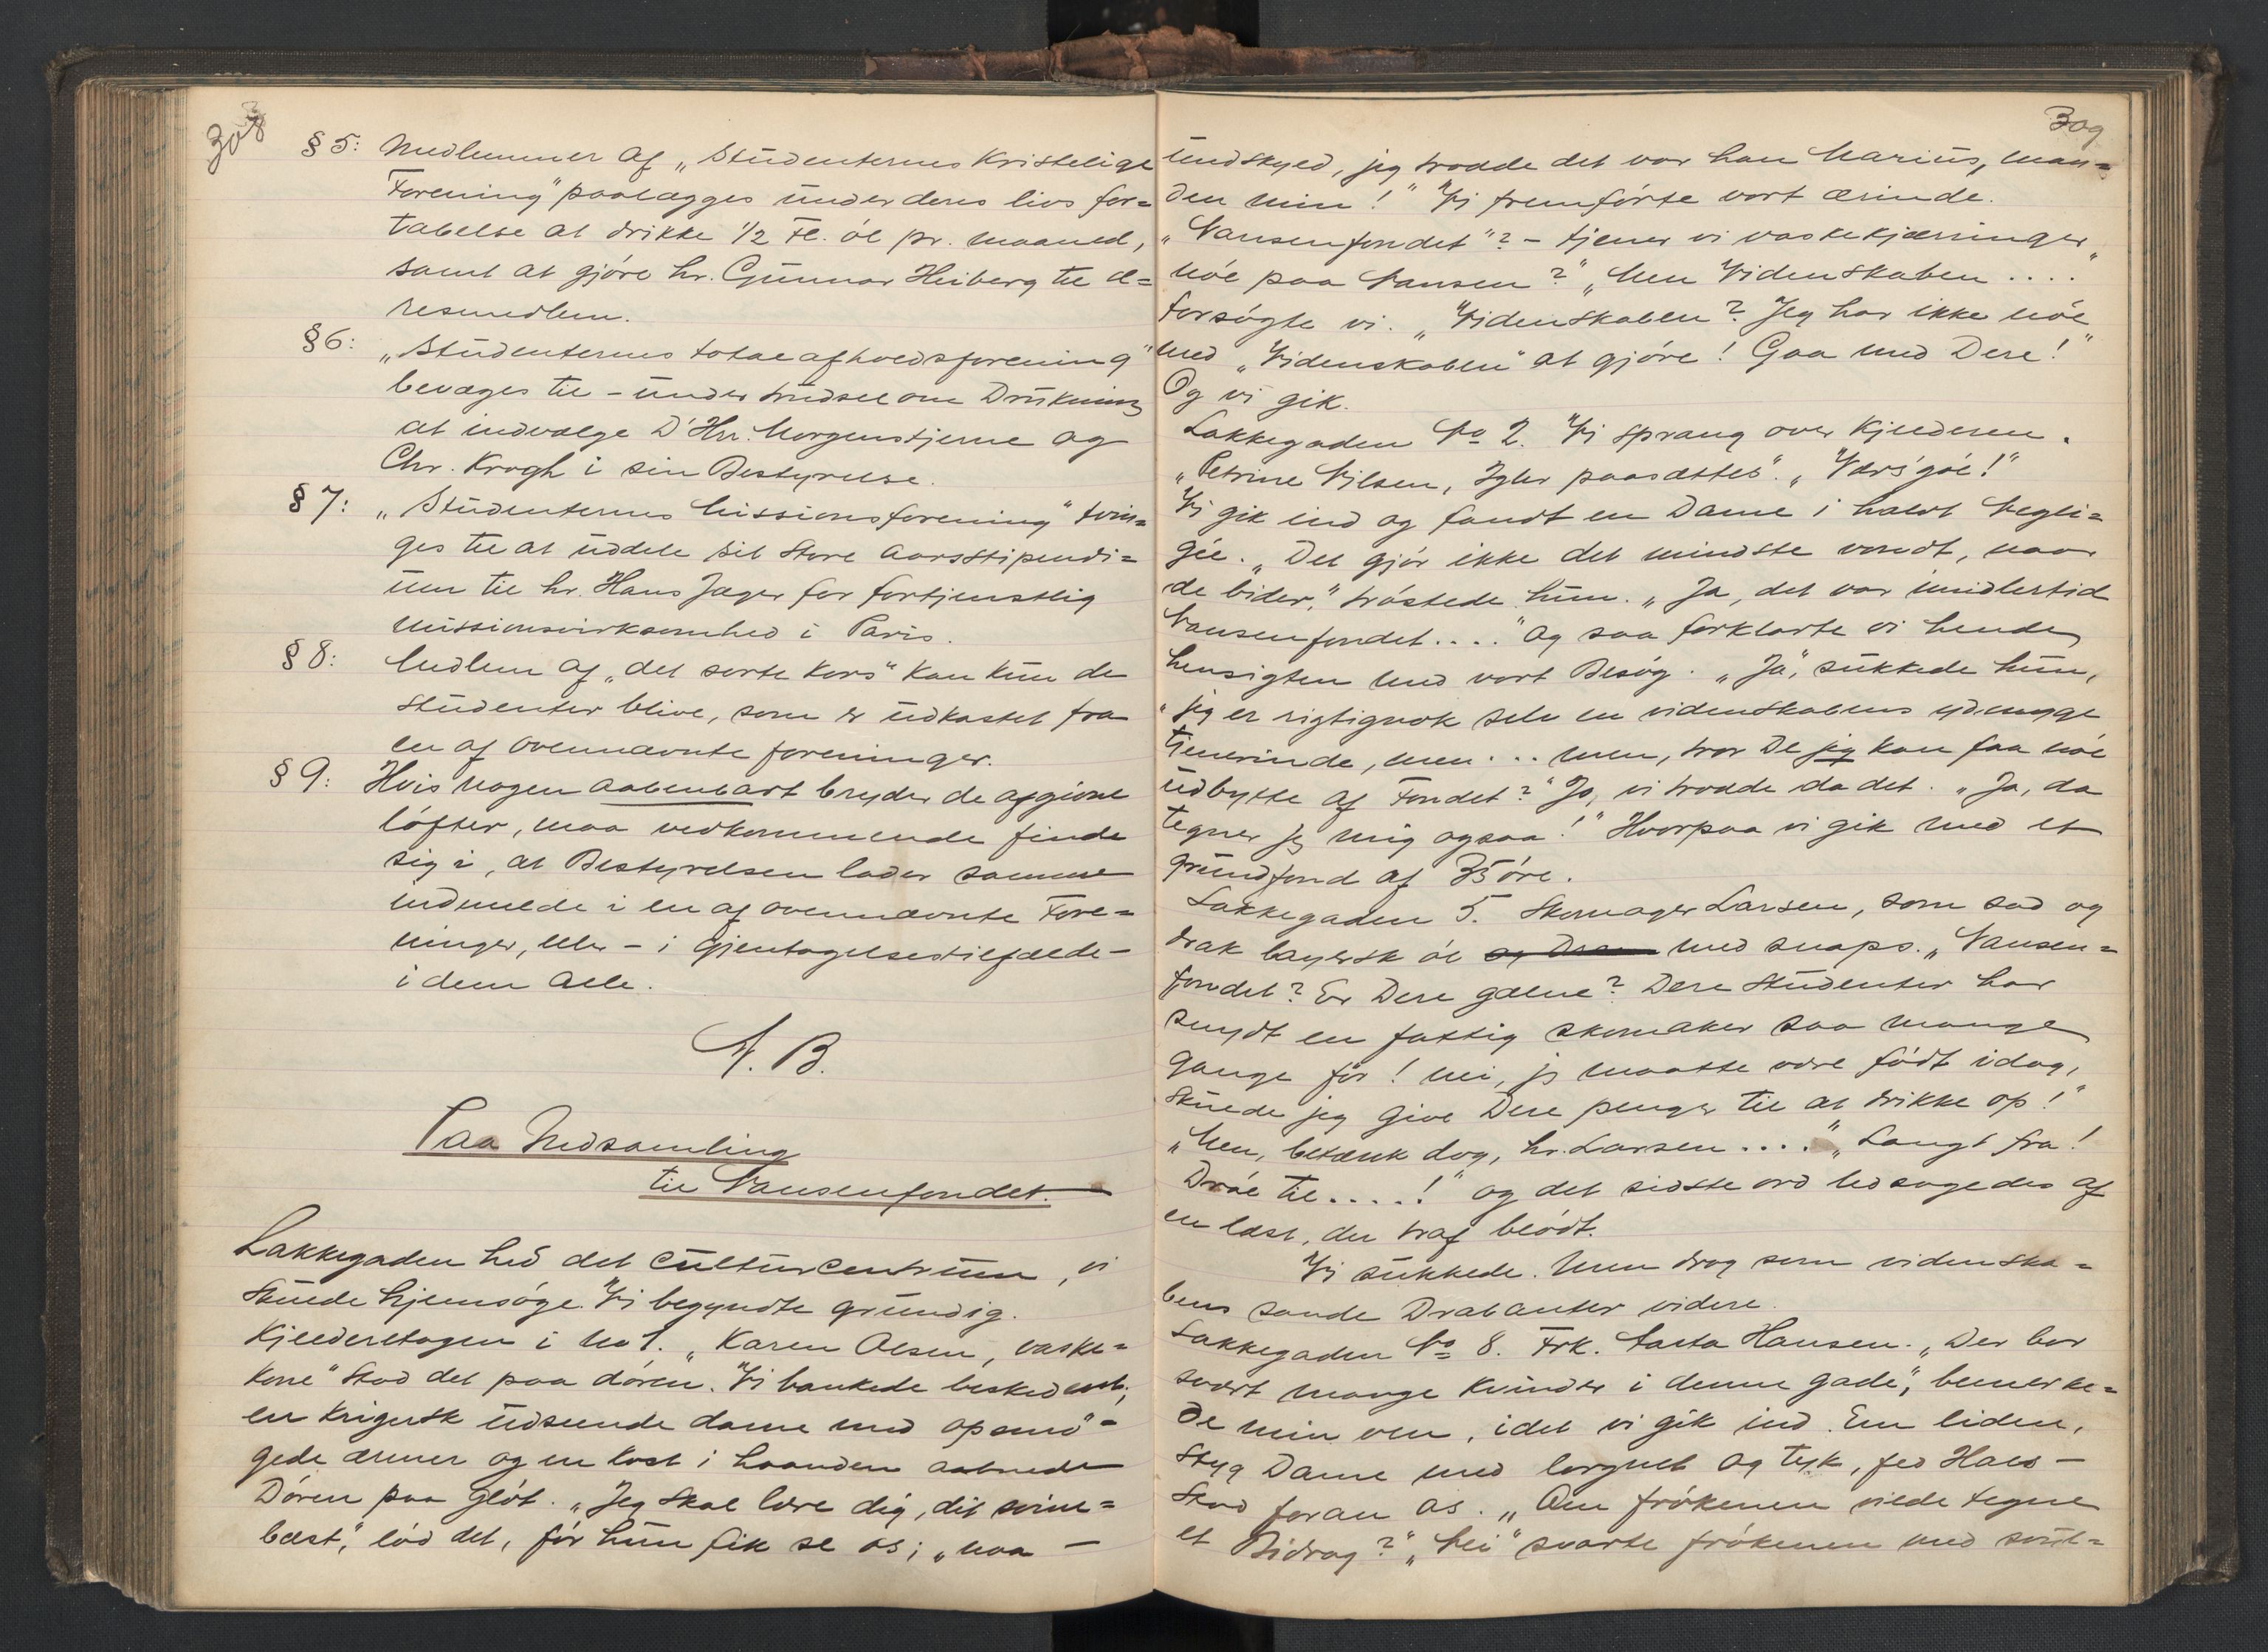 308
§ 5: Medlemmer af „Studenternes Kristelige
Forening" paalægges under deres livs for=
tabelse at drikke 1/2 Fl. øl pr. maaned,
samt at gjøre hr. Gunnar Heiberg til æ=
resmedlem.
§ 6: „Studenternes totalafholdsforening"
bevæges til – under trudsel om Drukning
at indvælge D'Hrr. Morgenstjerne og
Chr. Krogh i sin Bestyrelse.
§ 7: „Studenternes Missionsforening" tvin=
ges til at uddele sit store Aarsstipendi=
um til hr. Hans Jæger for fortjenstlig
missionsvirksomhed i Paris.
§ 8: Medlem af „det sorte kors" kan kun de
studenter blive, som er udkastet fra
en af ovennævnte foreninger.
§ 9: Hvis nogen aabenbart bryder de afgivne
løfter, maa vedkommende finde
sig i, at Bestyrelsen lader samme
indmelde i en af ovennævnte Fore=
ninger, eller – i Gjentagelsestilfælde –
i dem alle.
A. B.
Paa Indsamling
til Nansenfondet.
Lakkegaden hed det Culturcentrum, vi
skulde hjemsøge. Vi begyndte grundig.
Kjelderetagen i No 1. „Karen Olsen, vaske=
kone" stod det paa døren. Vi bankede beskedent;
en krigersk udseende dame med opsmø=
gede ærmer og en kost i haanden aabnede
Døren paa Gløt. „Jeg skal lære dig, dit svine=
bæst," lød det, før hun fik se os; „naa –
309
undskyld, jeg trodde det var han Marius, man=
den min!" Vi fremførte vort ærinde.
„Nansenfondet"? – tjener vi vaskekjærringer
nøe paa Nansen?" „Men Videnskaben ....
forsøgte vi. „Videnskaben? Jeg har ikke nøe
med „Videnskaben" at gjøre! Gaa med Dere!"
Og vi gik.
Lakkegaden No 2. Vi sprang over Kjelderen.
„Petrine Nilsen, Igler paasættes". „Værs'goe!"
Vi gik ind og fandt en Dame i halvt Negli=
gée. „Det gjør ikke det mindste vondt, naar
de bider," trøstede hun. „Ja, det var imidlertid
Nansenfondet...." Og saa forklarte vi hende
hensigten med vort Besøg. „Ja," sukkede hun,
„jeg er rigtignok selv en videnskabens ydmyge
tjenerinde, men... men, tror De jeg kan faa nøe
udbytte af Fondet?" Jo, vi trodde da det. „Ja, da
tegner jeg mig ogsaa!" Hvorpaa vi gik med et
grundfond af 35 øre.
Lakkegaden 5. Skomager Larsen, som sad og
drak bayersk øl med snaps. „Nansen=
fondet? Er Dere gælne? Dere studenter har
snydt en fattig skomaker saa mange
Gange før! nei, jeg maatte være født idag,
skulde jeg give Dere penger til at drikke op!"
„Men, betænk dog, hr. Larsen...." „Langt fra!
Dra te ....!" og det sidste ord ledsagedes af
en læst, der traf blødt.
Vi sukkede. Men drog som videnska=
bens sande Drabanter videre.
Lakkegaden No 8. Frk. Hansen. „Der bor
svært mange kvinder i denne gade", bemerke=
de min ven, idet vi gik ind. En liden,
styg Dame med lorgnet og tyk, fed Hals –
stod foran os. „Om frøkenen vilde tegne
et Bidrag?" „Nei" svarte frøkenen med